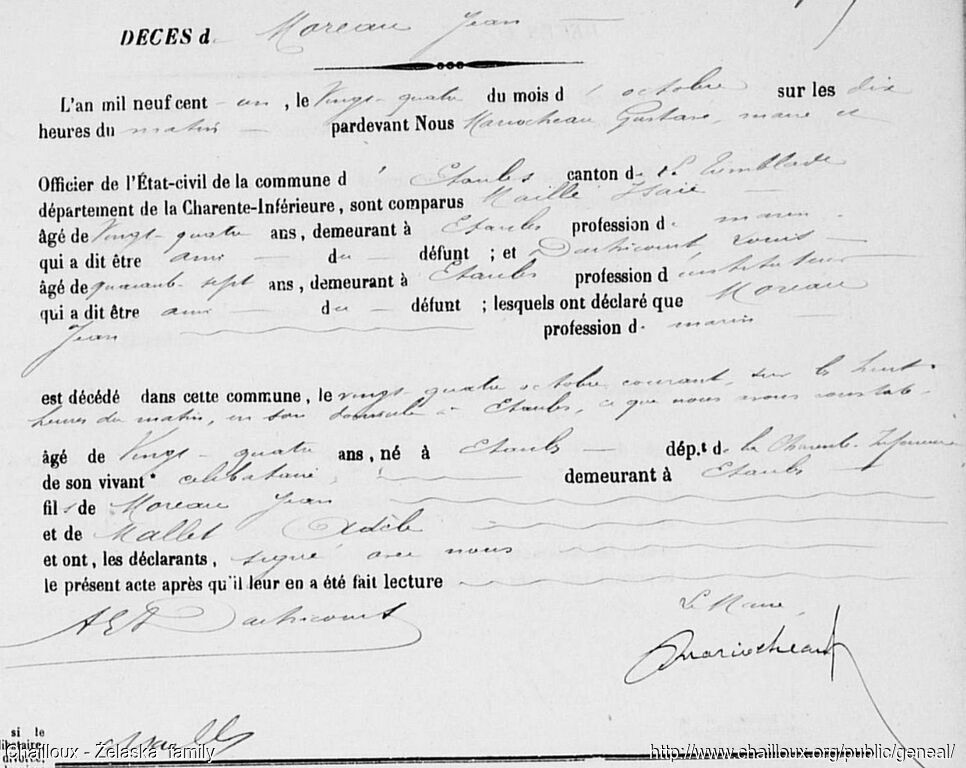 DECES d Moreau Jean
L'an mil neuf cent un, le Vingt-quatre du mois d'octobre sur les dix
heures du matin pardevant Nous Mariocheau Gustave, maire et
Officier de l'État-civil de la commune d'Etaules canton de La Tremblade
département de la Charente-Inférieure, sont comparus Maillé Isaïe
âgé de Vingt-quatre ans, demeurant à Etaules profession de marin
qui a dit être ami du défunt ; et Dartricourt Louis
âgé de quarante-sept ans, demeurant à Etaules profession d'instituteur
qui a dit être ami du défunt ; lesquels ont déclaré que Moreau
Jean profession de marin
est décédé dans cette commune, le vingt-quatre octobre courant, sur les huit
heures du matin, en son domicile à Etaules, ce que nous avons constaté
âgé de Vingt-quatre ans, né à Etaules dép.t de la Charente-Inférieure
de son vivant célibataire, demeurant à Etaules
fils de Moreau Jean
et de Mallet Adèle
et ont, les déclarants, signé avec nous
le présent acte après qu'il leur en a été fait lecture
Dartricourt
Le Maire,
Mariocheau
si le
divorcé,
Chailloux - Zelaska family
http://www.chailloux.org/public/geneal/